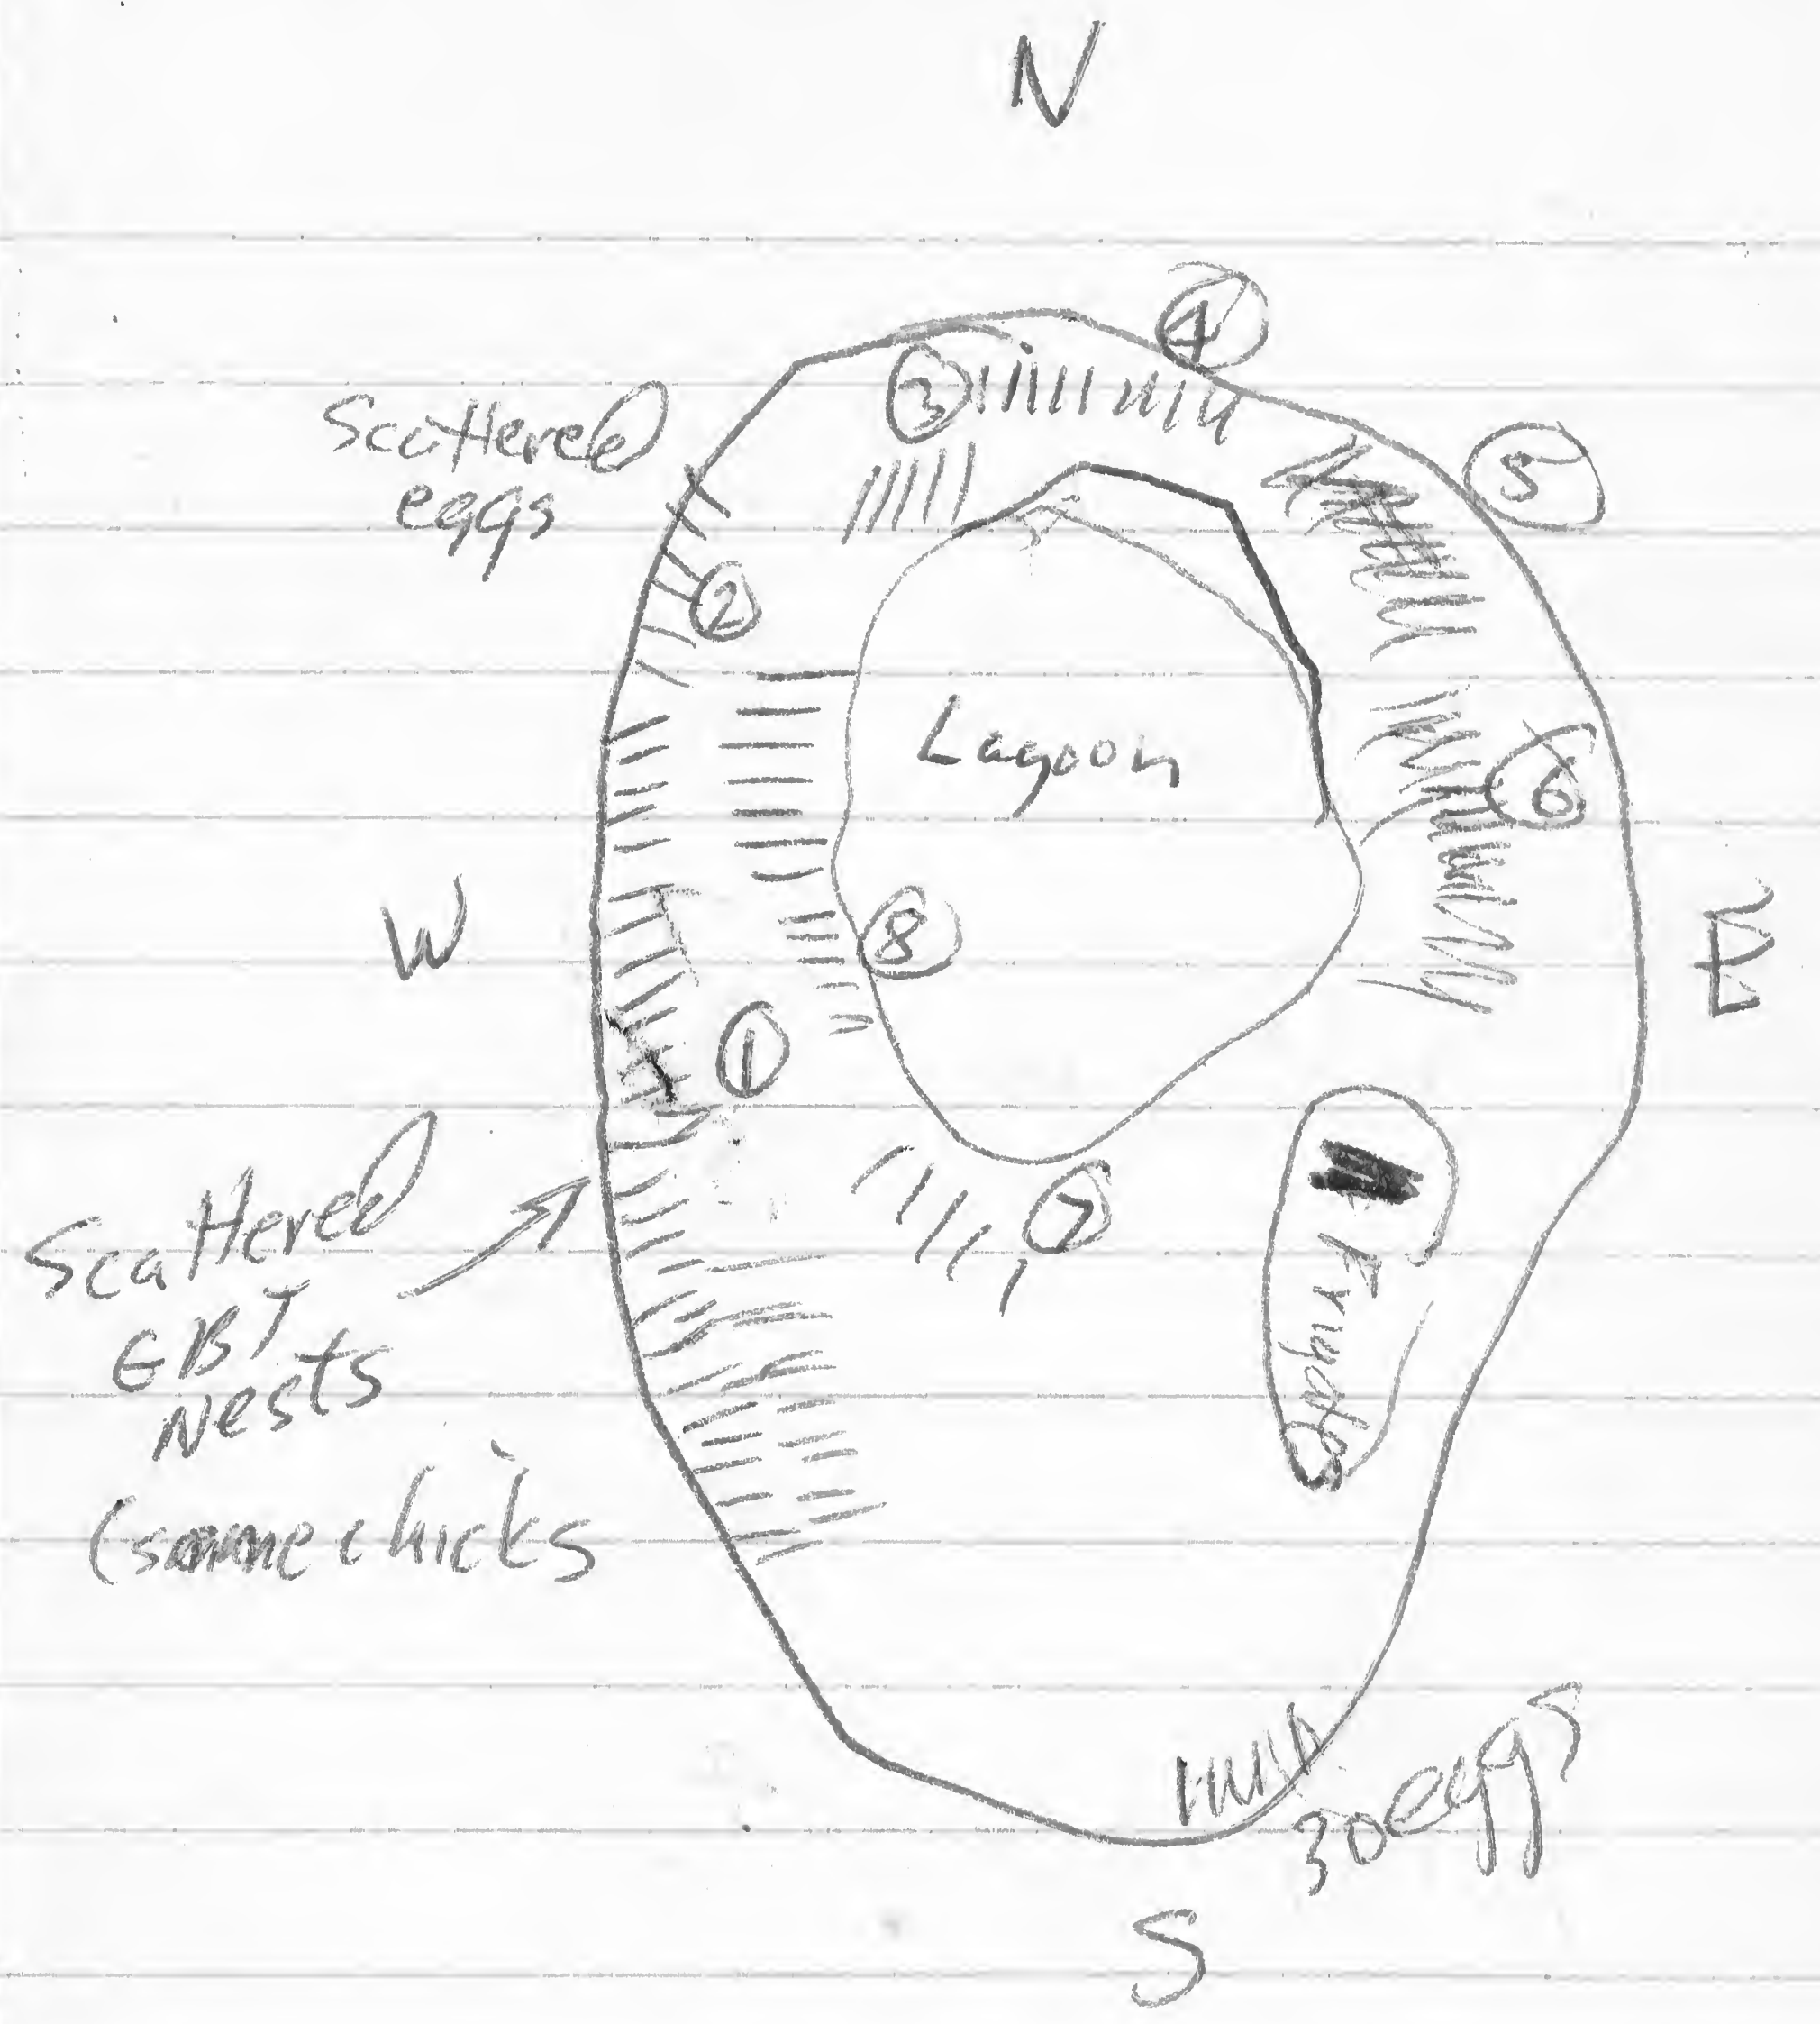 N
4
3
Scattered
eggs
5
2
Lagoon
6
W
8
E
1
Scattered
GBT
Nests
(some chicks
7
30 eggs
S